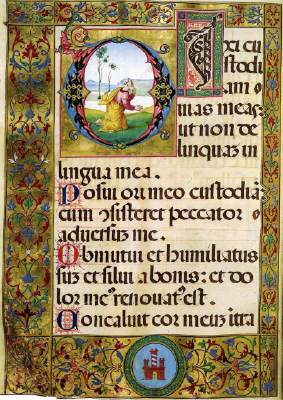 DIxi cu
stodi
am v
ias meas
ut non de
linquaz in
lingua mea.
Posui ori meo custodiā
cum ↄsisteret peccator
adversus me.
Obmutui et humiliatus
suz et silui a bonis: et do
lor meꝰ renovatꝰ est.
Concaluit cor meuz itra